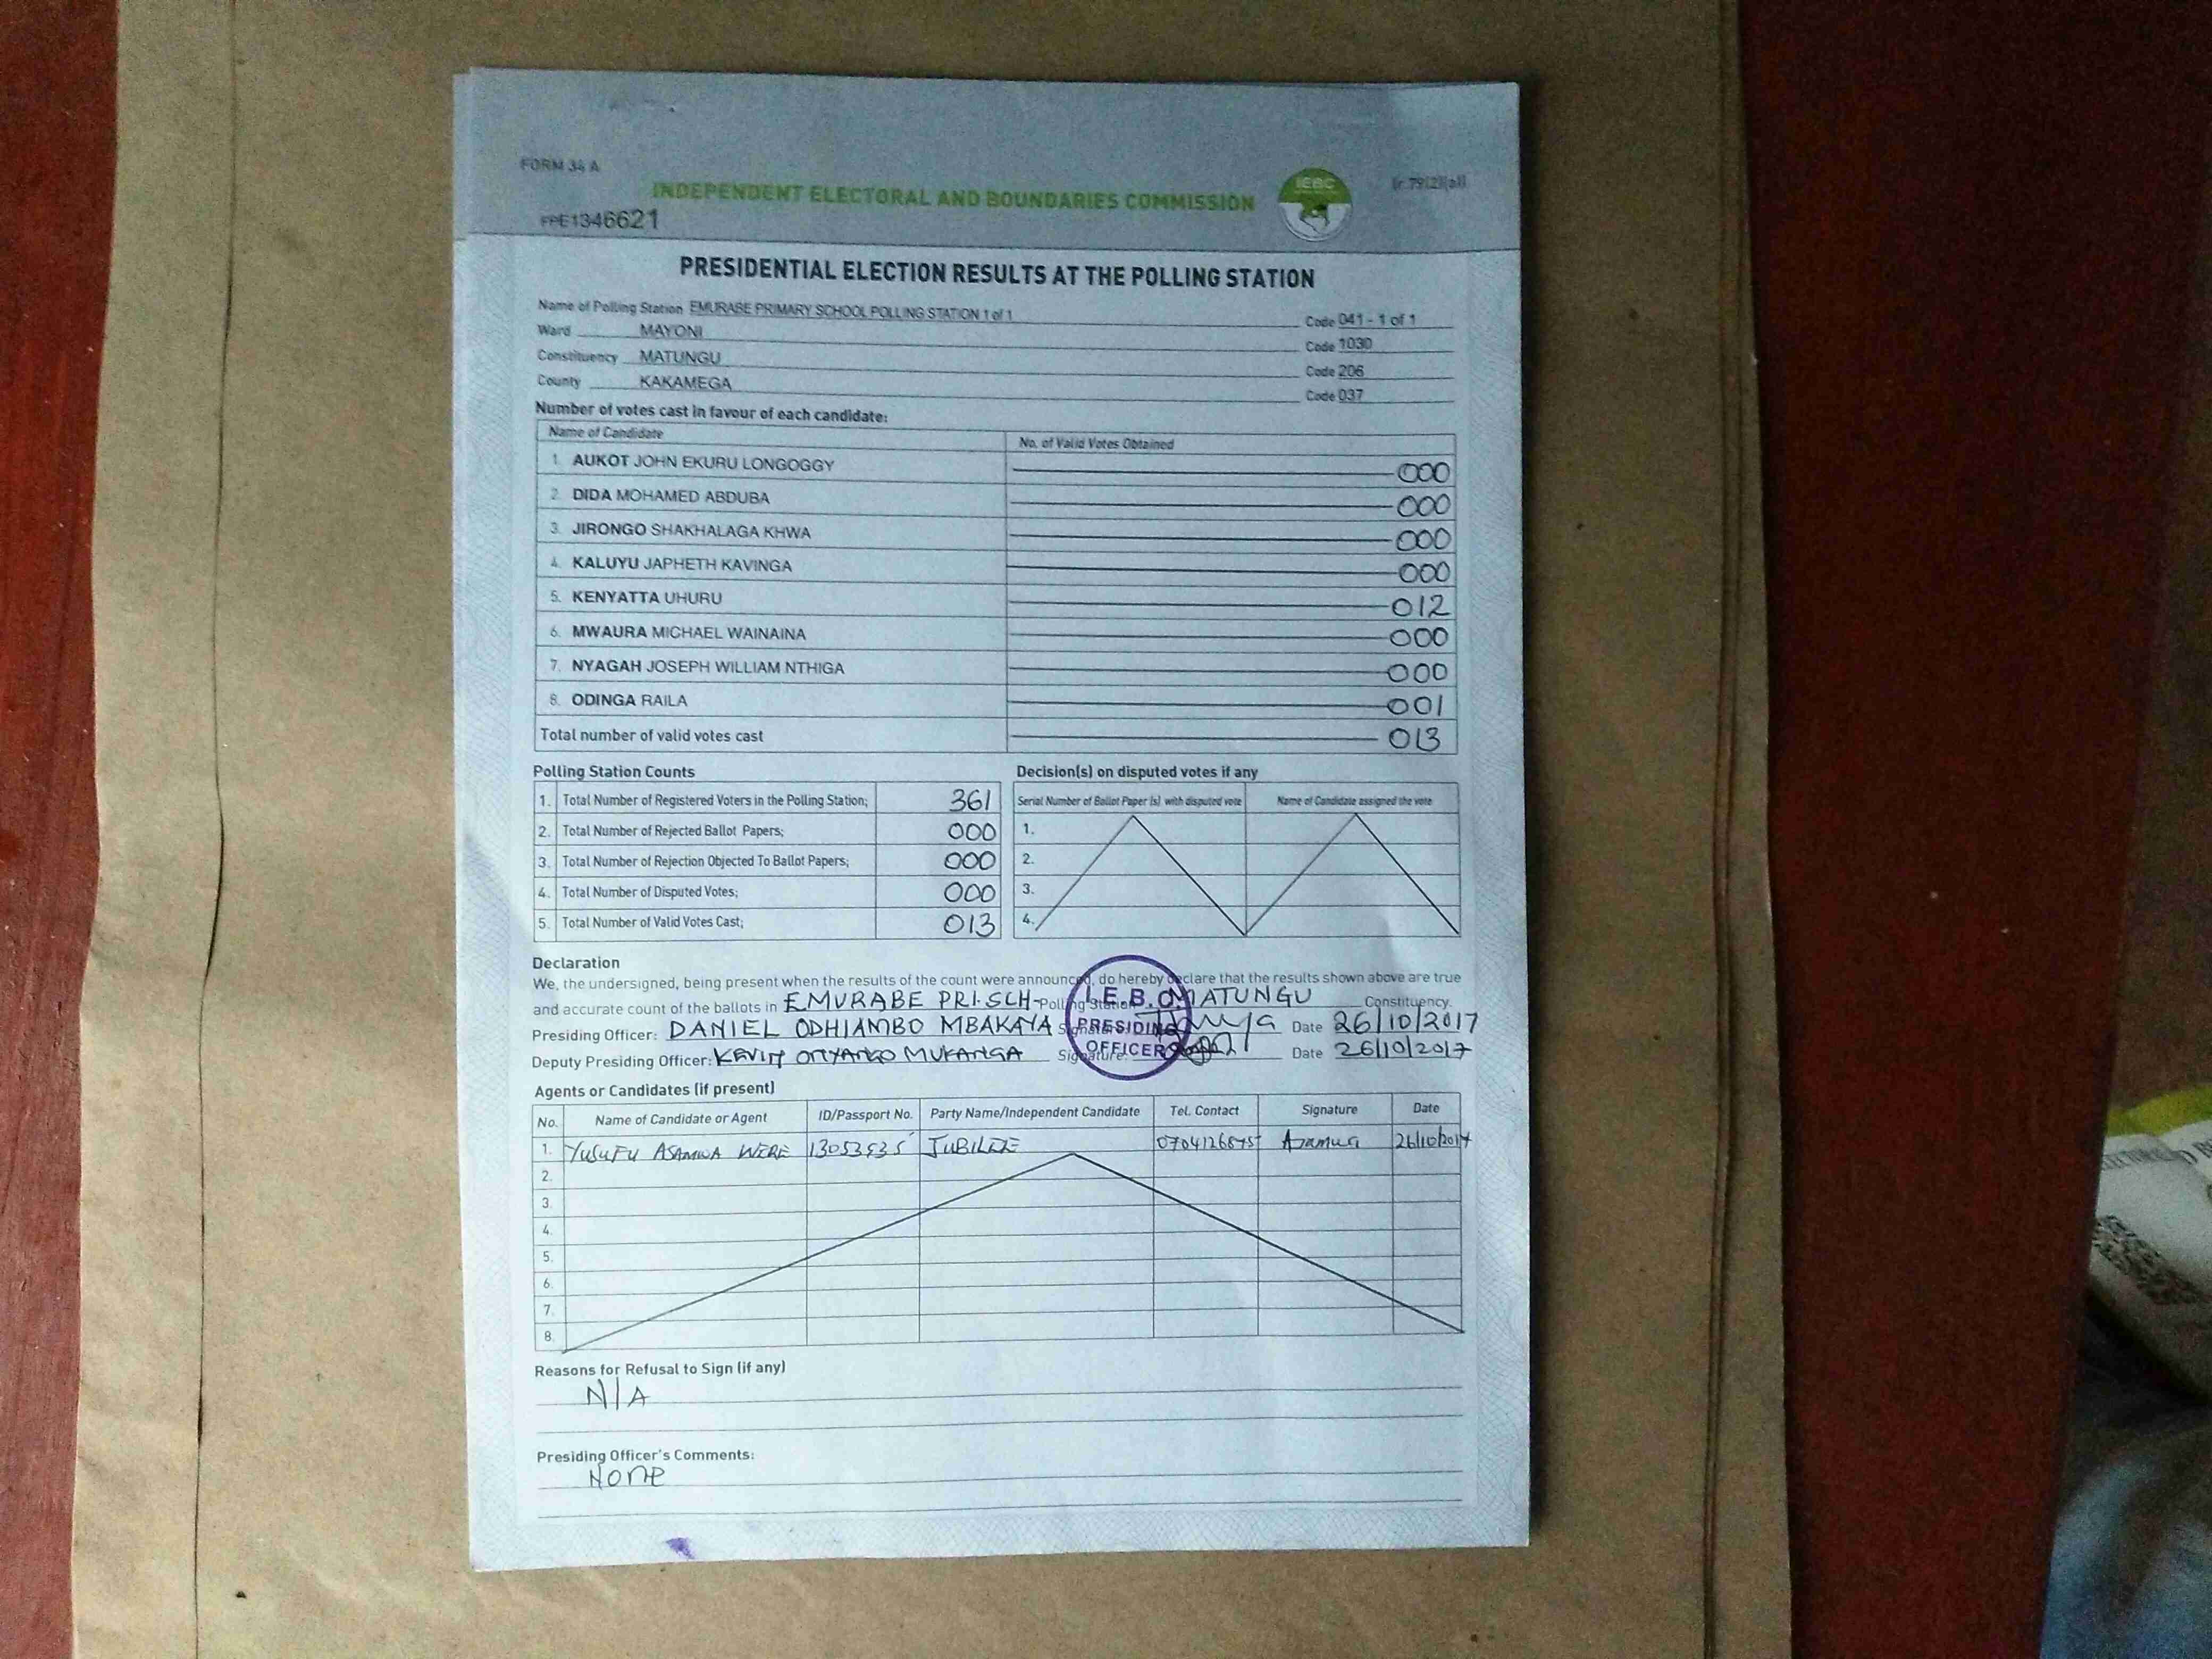 FORM 34 A
(r.79(2)(a))
INDEPENDENT ELECTORAL AND BOUNDARIES COMMISSION
IEBC
FPE1346621
PRESIDENTIAL ELECTION RESULTS AT THE POLLING STATION
Name of Polling Station EMURABE PRIMARY SCHOOL POLLING STATION 1 of 1 Code 041 - 1 of 1
Ward MAYONI Code 1030
Constituency MATUNGU Code 206
County KAKAMEGA Code 037
Number of votes cast in favour of each candidate:
Name of Candidate No. of Valid Votes Obtained
1. AUKOT JOHN EKURU LONGOGGY 000
2. DIDA MOHAMED ABDUBA 000
3. JIRONGO SHAKHALAGA KHWA 000
4. KALUYU JAPHETH KAVINGA 000
5. KENYATTA UHURU 012
6. MWAURA MICHAEL WAINAINA 000
7. NYAGAH JOSEPH WILLIAM NTHIGA 000
8. ODINGA RAILA 001
Total number of valid votes cast 013
Polling Station Counts
1. Total Number of Registered Voters in the Polling Station; 361
2. Total Number of Rejected Ballot Papers; 000
3. Total Number of Rejection Objected To Ballot Papers; 000
4. Total Number of Disputed Votes; 000
5. Total Number of Valid Votes Cast; 013
Decision(s) on disputed votes if any
Serial Number of Ballot Paper (s) with disputed vote Name of Candidate assigned the vote
1.
2.
3.
4.
Declaration
We, the undersigned, being present when the results of the count were announced, do hereby declare that the results shown above are true
and accurate count of the ballots in EMURABE PRI. SCH Polling Station MATUNGU Constituency.
Presiding Officer: DANIEL ODHIAMBO MBAKAYA Signature: Date 26/10/2017
Deputy Presiding Officer: KEVIN ONYANGO MUKANGA Signature: Date 26/10/2017
I.E.B.C
PRESIDING
OFFICER
Agents or Candidates (if present)
No. Name of Candidate or Agent ID/Passport No. Party Name/Independent Candidate Tel. Contact Signature Date
1. YUSUFU ASAMWA WERE JUBILEE 26/10/2017
2.
3.
4.
5.
6.
7.
8.
Reasons for Refusal to Sign (if any)
N/A
Presiding Officer's Comments:
None